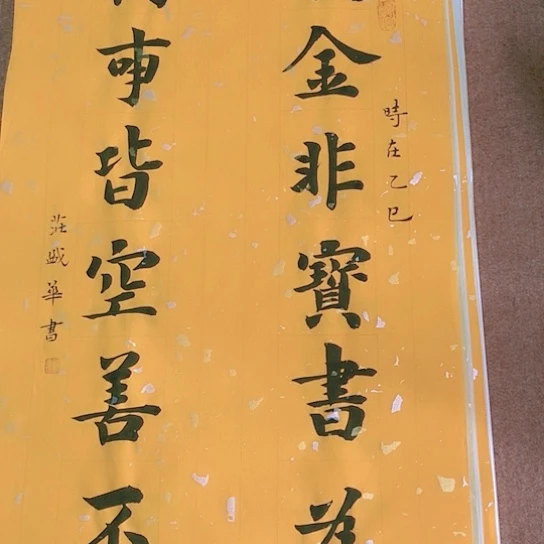 時在乙巳
金非寶書為
事皆空善不
莊盛華書